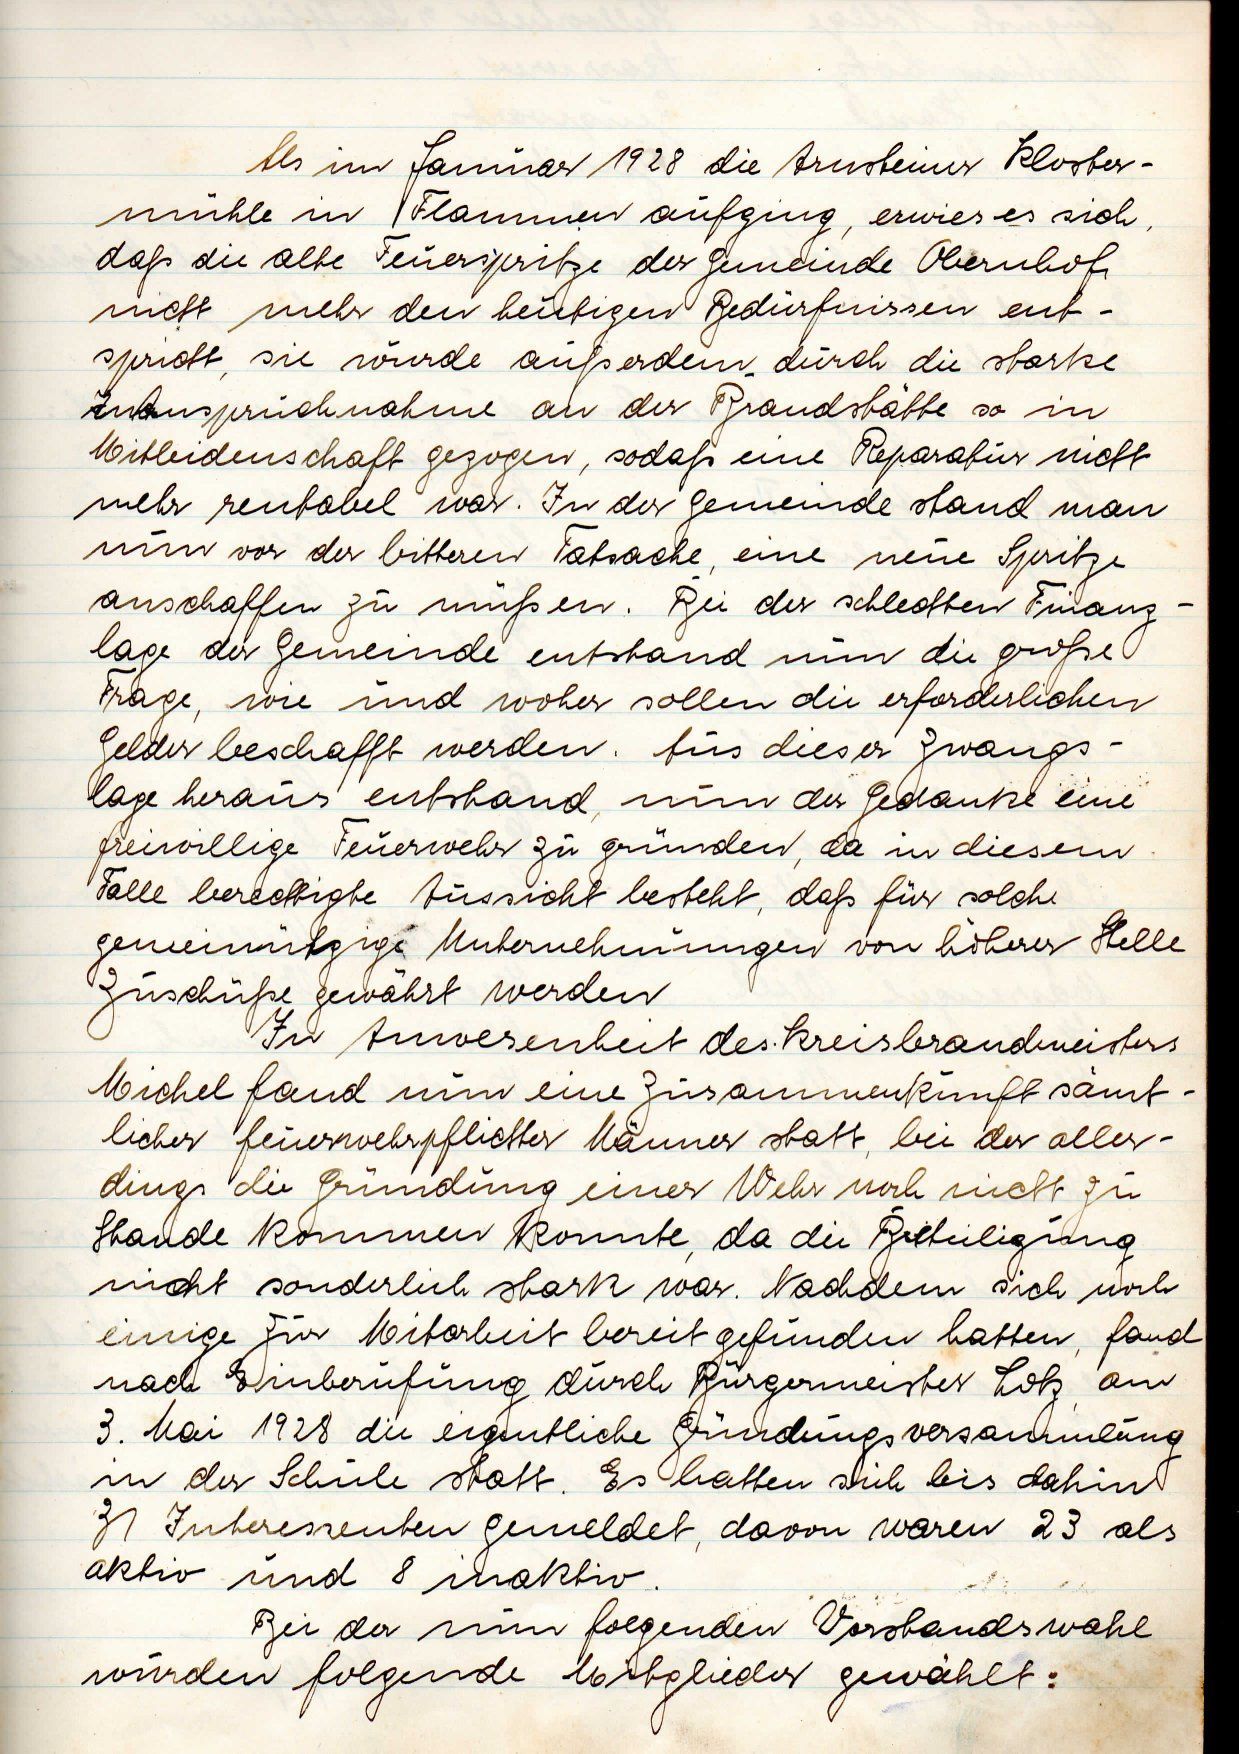 Als im Januar 1928 die Arnsteiner Kloster-
mühle in Flammen aufging, erwies es sich,
daß die alte Feuerspritze der Gemeinde Obernhof,
nicht mehr den heutigen Bedürfnissen ent-
spricht, sie wurde außerdem durch die starke
Inanspruchnahme an der Brandstätte so in
Mitleidenschaft gezogen, sodaß eine Reparatur nicht
mehr rentabel war. In der Gemeinde stand man
nun vor der bitteren Tatsache, eine neue Spritze
anschaffen zu müßen. Bei der schlechten Finanz-
lage der Gemeinde entstand nun die große
Frage, wie und woher sollen die erforderlichen
Gelder beschafft werden. Aus dieser Zwangs-
lage heraus entstand, nun der Gedanke eine
freiwillige Feuerwehr zu gründen, da in diesem
Falle berechtigte Aussicht besteht, daß für solche
gemeinnützige Unternehmungen von höherer Stelle
Zuschüße gewährt werden
In Anwesenheit des Kreisbrandmeisters
Michel fand nun eine Zusammenkunft sämt-
licher feuerwehrpflichter Männer statt, bei der aller-
dings die Gründung einer Wehr noch nicht zu
Stande kommen konnte, da die Beteiligung
nicht sonderlich stark war. Nachdem sich noch
einige zur Mitarbeit bereit gefunden hatten, fand
nach Einberufung durch Bürgermeister Lotz, am
3. Mai 1928 die eigentliche Gründungsversammlung
in der Schule statt. Es hatten sich bis dahin
31 Interessenten gemeldet, davon waren 23 als
aktiv und 8 inaktiv.
Bei der nun folgenden Vorstandswahl
wurden folgende Mitglieder gewählt: